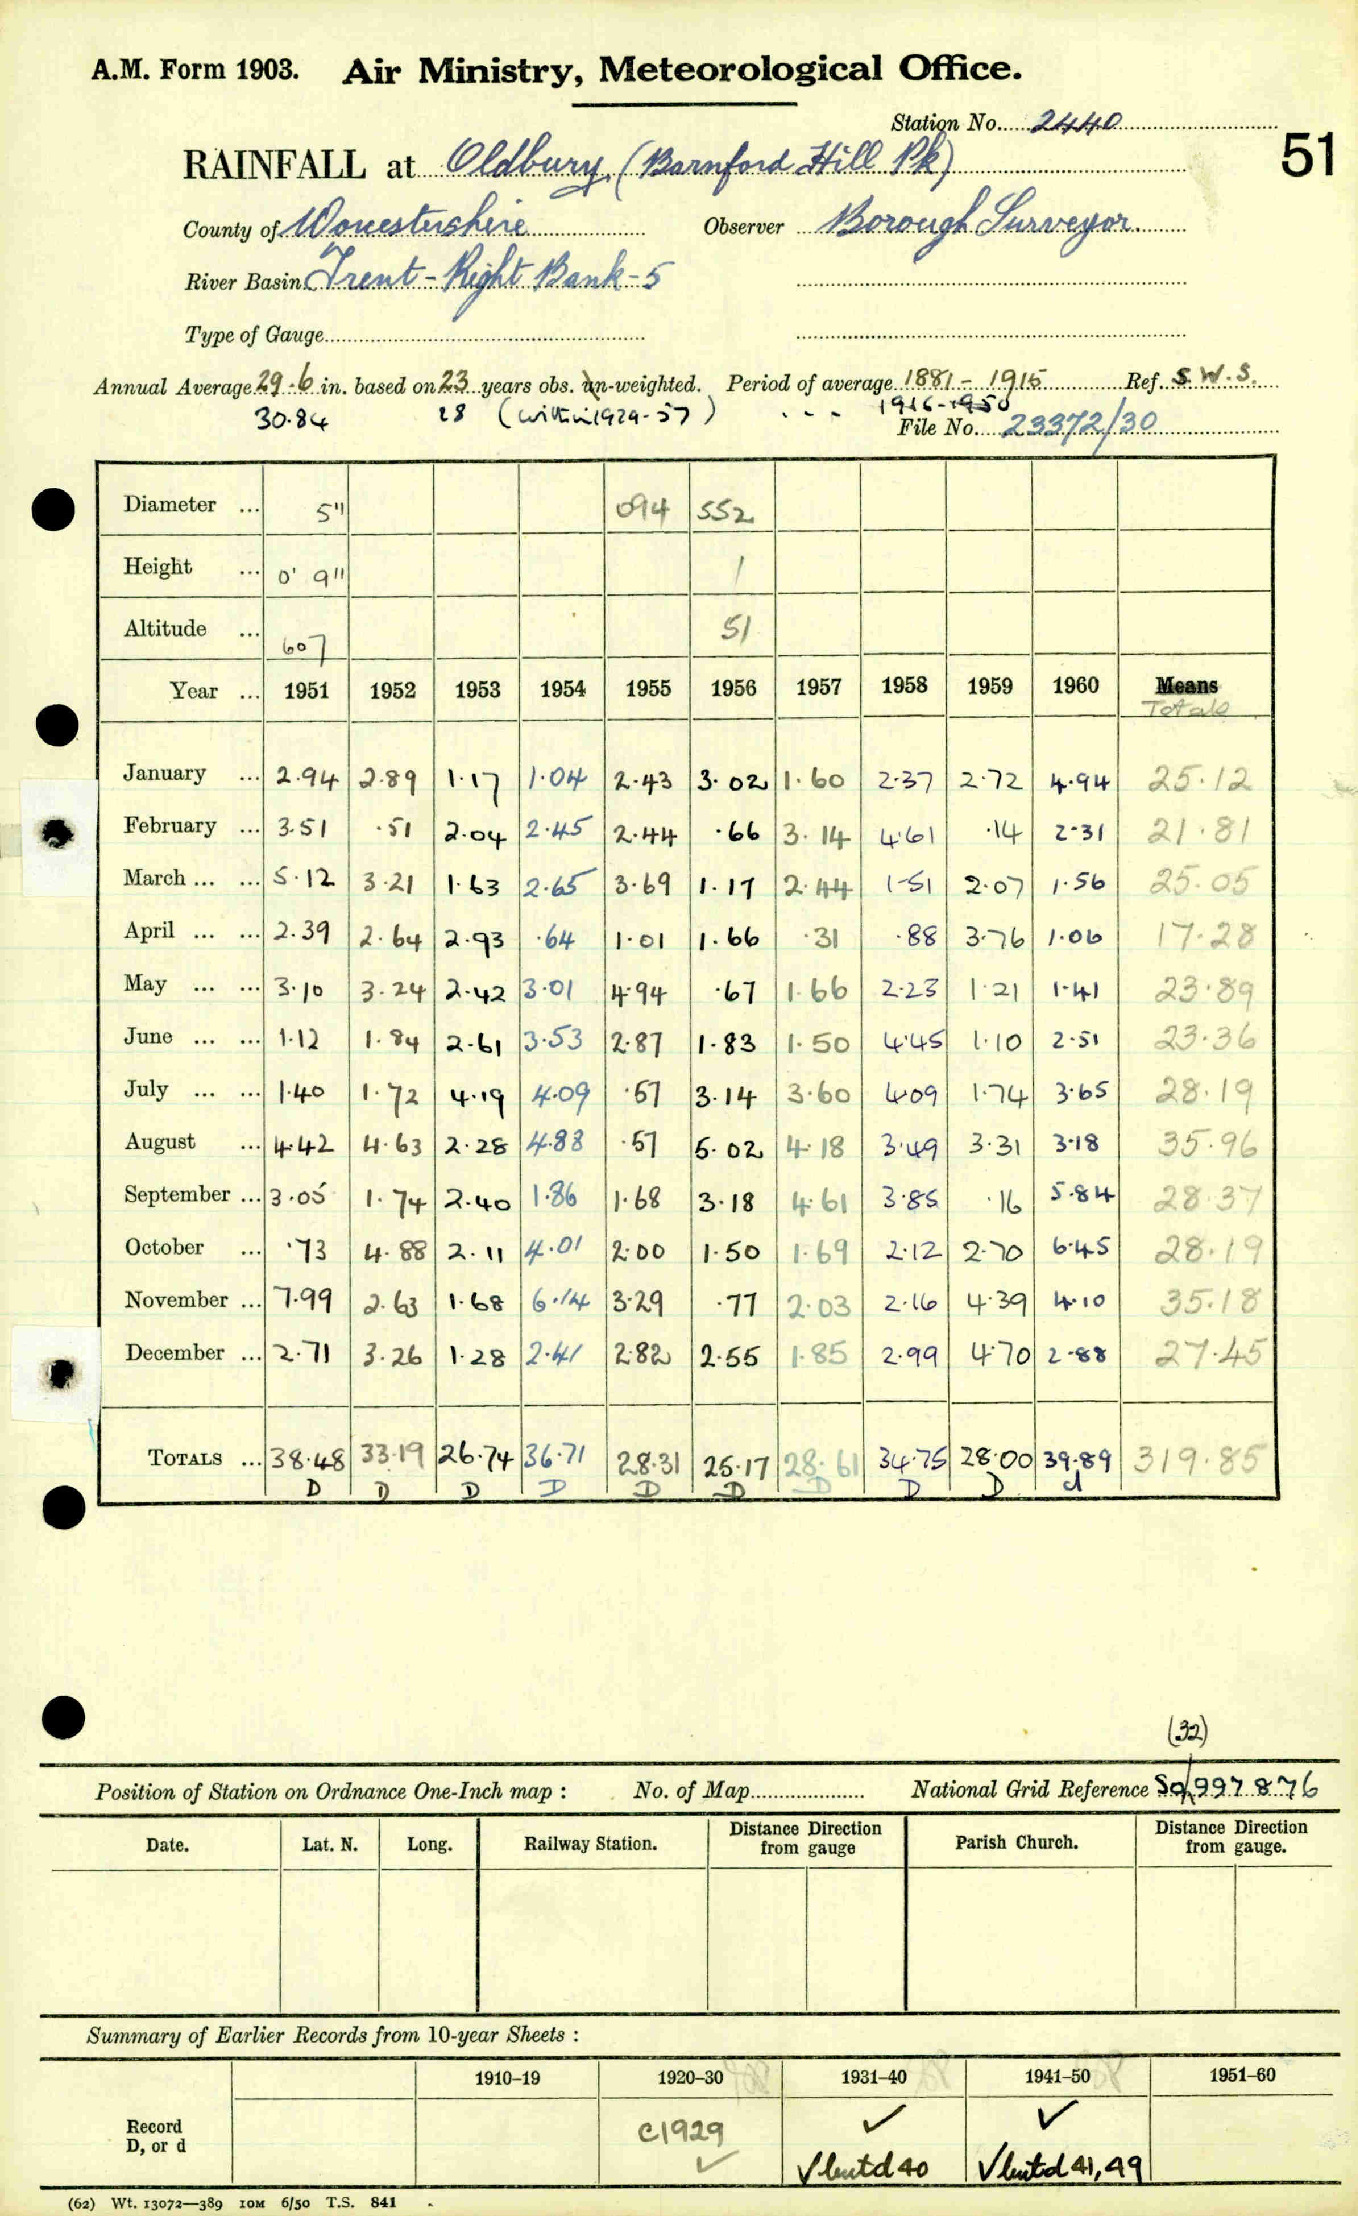 A.M. Form 1903. Air Ministry, Meteorological Office.
Station No. 2440
51
RAINFALL at Oldbury (Barnford Hill Pk)
County of Worcestershire Observer Borough Surveyor
River Basin Trent - Right Bank - 5
Type of Gauge
Annual Average 29.6 in. based on 23 years obs. un-weighted. Period of average 1881 - 1915 Ref. S.W.S.
30.84 28 (within 1929-57) 1916-1950
File No. 23372/30
Diameter ... 5" 094 552
Height ... 0' 9" 1
Altitude ... 607 51
Year ... 1951 1952 1953 1954 1955 1956 1957 1958 1959 1960 Means
Totals
January ... 2.94 2.89 1.17 1.04 2.43 3.02 1.60 2.37 2.72 4.94 25.12
February ... 3.51 .51 2.04 2.45 2.44 .66 3.14 4.61 .14 2.31 21.81
March ... ... 5.12 3.21 1.63 2.65 3.69 1.17 2.44 1.51 2.07 1.56 25.05
April ... ... 2.39 2.64 2.93 .64 1.01 1.66 .31 .88 3.76 1.06 17.28
May ... ... 3.10 3.24 2.42 3.01 4.94 .67 1.66 2.23 1.21 1.41 23.89
June ... ... 1.12 1.84 2.61 3.53 2.87 1.83 1.50 4.45 1.10 2.51 23.36
July ... ... 1.40 1.72 4.19 4.09 .57 3.14 3.60 4.09 1.74 3.65 28.19
August ... 4.42 4.63 2.28 4.88 .57 5.02 4.18 3.49 3.31 3.18 35.96
September ... 3.05 1.74 2.40 1.86 1.68 3.18 4.61 3.85 .16 5.84 28.37
October ... .73 4.88 2.11 4.01 2.00 1.50 1.69 2.12 2.70 6.45 28.19
November ... 7.99 2.63 1.68 6.14 3.29 .77 2.03 2.16 4.39 4.10 35.18
December ... 2.71 3.26 1.28 2.41 2.82 2.55 1.85 2.99 4.70 2.88 27.45
TOTALS ... 38.48 33.19 26.74 36.71 28.31 25.17 28.61 34.75 28.00 39.89 319.85
D D D D D D D D D d
(32)
Position of Station on Ordnance One-Inch map : No. of Map National Grid Reference SO/997876
Date. Lat. N. Long. Railway Station. Distance Direction from gauge Parish Church. Distance Direction from gauge.
Summary of Earlier Records from 10-year Sheets :
1910-19 1920-30 1931-40 1941-50 1951-60
Record D, or d c1929 ✓ ✓ ✓
✓ but d 40 ✓ but d 41, 49
(62) Wt. 13072—389 10M 6/50 T.S. 841